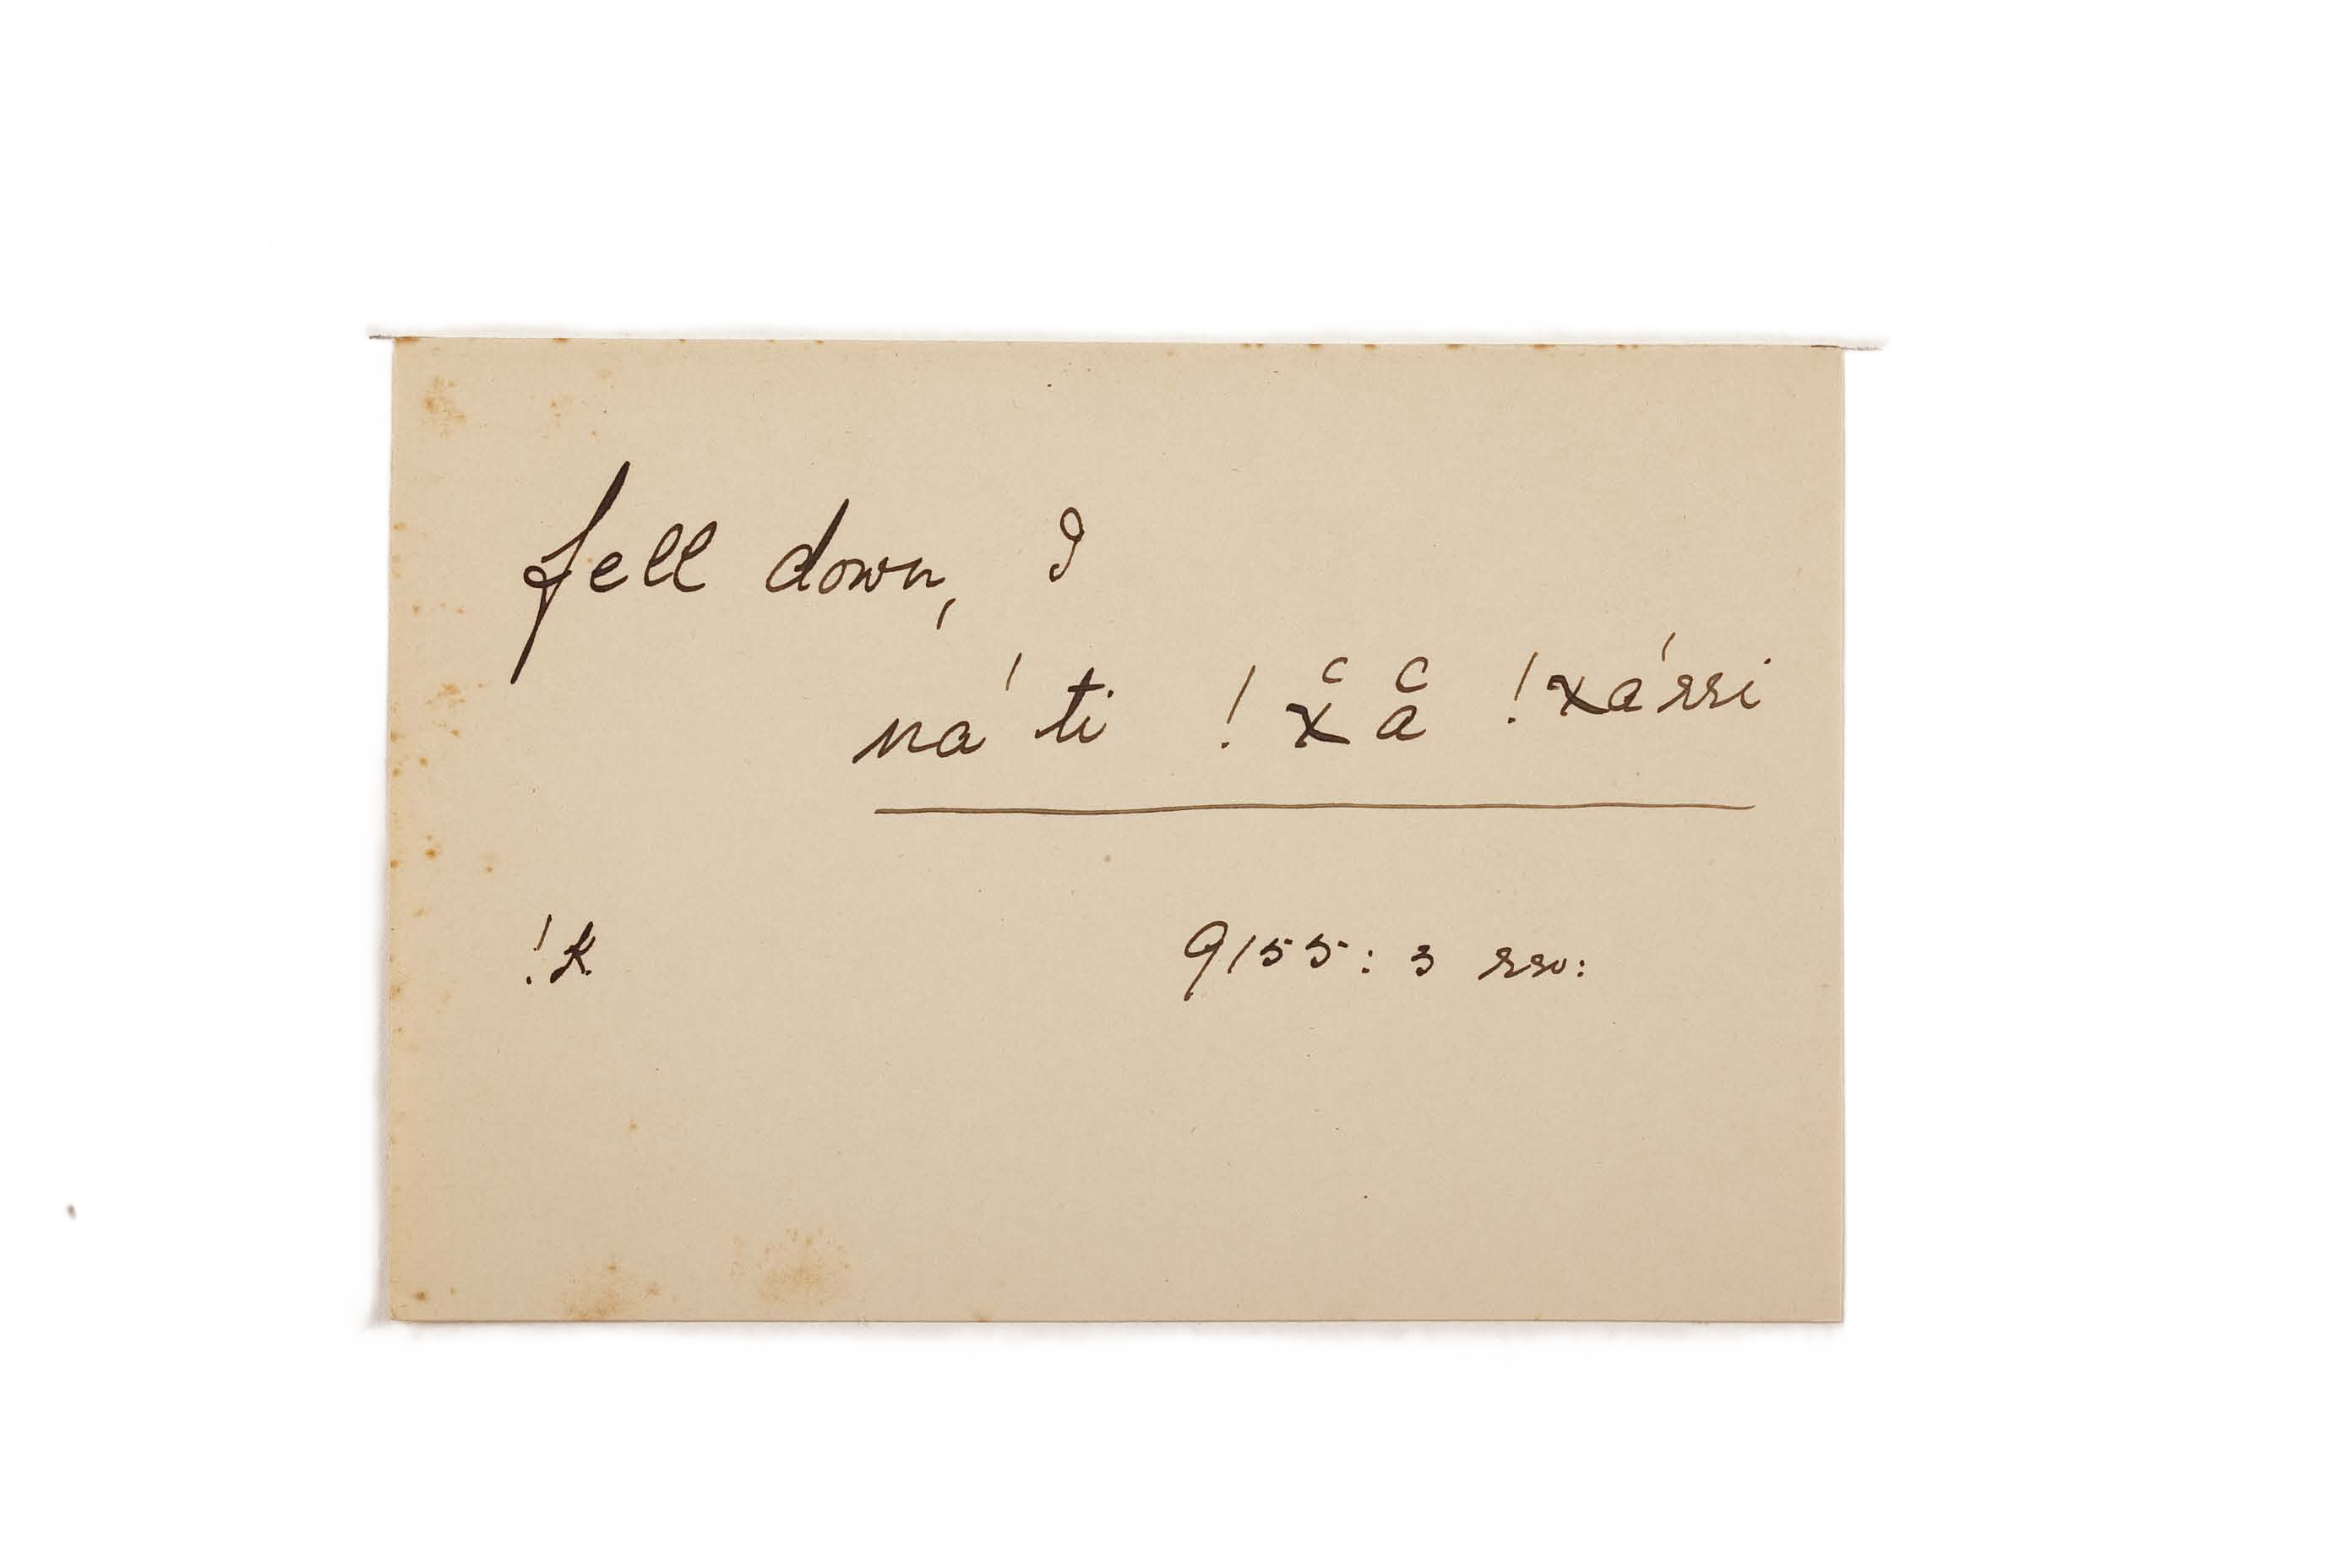 fell down, I
ná ti ! x̔a̔ !xárri
!k. 9155: 3 rev: